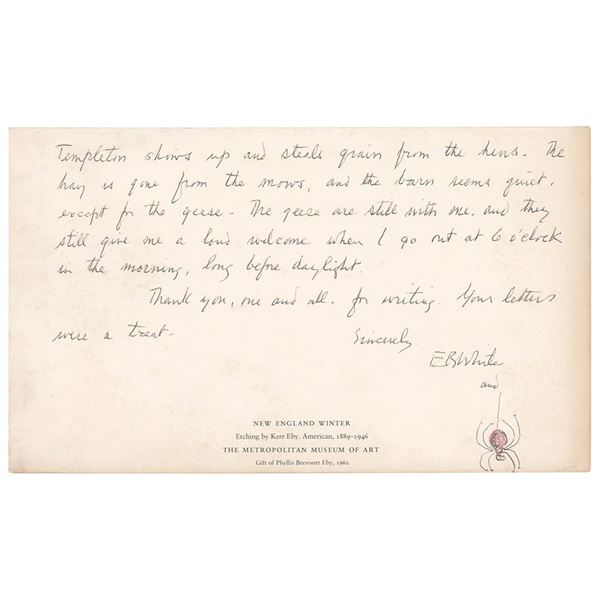 Templeton shows up and steals grain from the hens. The
hay is gone from the mows, and the barn seems quiet,
except for the geese. The geese are still with me, and they
still give me a loud welcome when I go out at 6 o'clock
in the morning, long before daylight.
Thank you, one and all, for writing. Your letters
were a treat.
Sincerely
EBWhite
and
NEW ENGLAND WINTER
Etching by Kerr Eby. American, 1889–1946
THE METROPOLITAN MUSEUM OF ART
Gift of Phyllis Brevoort Eby, 1962